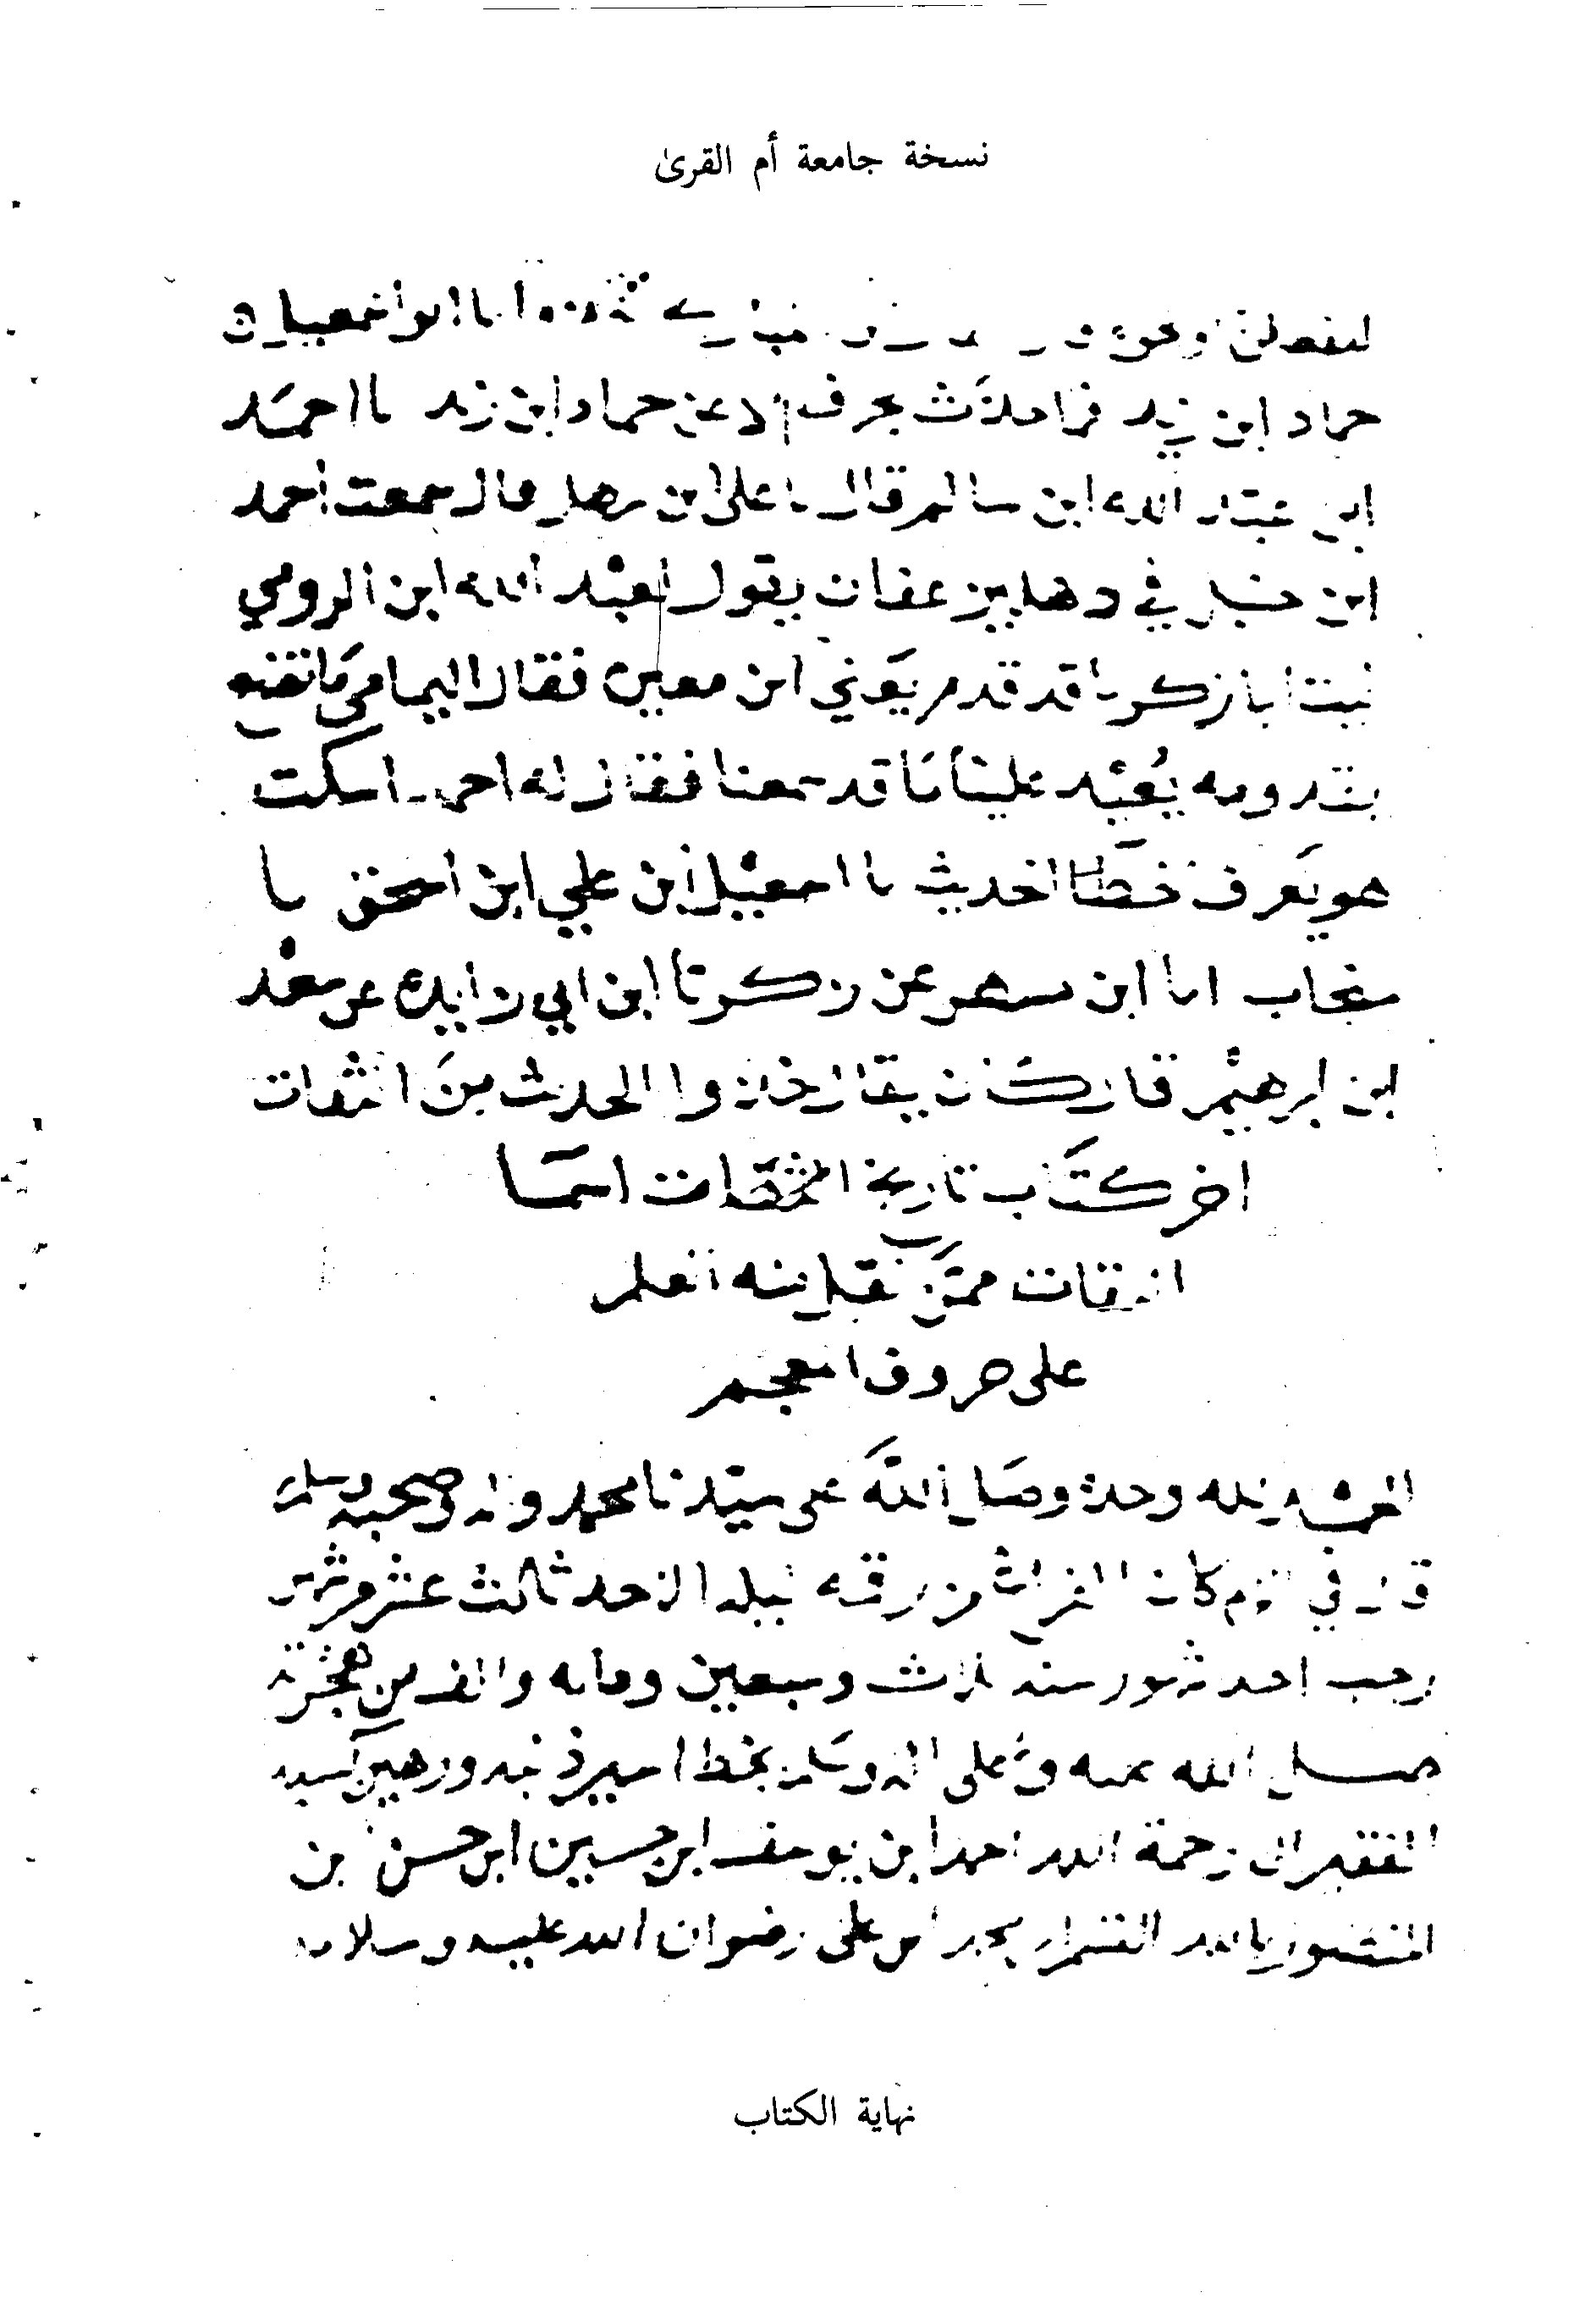 نسخة جامعة أم القرى
حماد ابن زيد بحرف الا عن حماد ابن زيد نا احمد
ابن عبد الله ابن سالم قال نا على ابن سهل قال سمعت احمد
ابن حنبل في دهليز عفان يقول لعبد الله ابن الرومي
ليت ابا زكريا قد قدم يعني ابن معين فقال اليمامي ما تصنع
بقدومه يعيد علينا ما قد سمعنا فقال له احمد اسكت
هو يعرف خطا الحديث نا اسمعيل ابن علي ابن اسحق نا
منجاب انا ابن مسهر عن زكريا ابن ابي زايده عن سعد
ابن ابرهيم قال كان يقال خذوا الحديث من الثقات
اخر كتاب تاريخ الثقات اسما
الثقات ممن نقل عنه العلم
على حروف المعجم
الحمد لله وحده وصلى الله على سيدنا محمد واله وصحبه وسلم
قال في الام كان الفراغ من رقه ليلة الاحد ثالث عشر شهر
رجب احد شهور سنه ثلاث وسبعين ومايه والف من هجرته
صلى الله عليه وعلى اله وسلم بخط اسير ذنبه ورهين كسبه
الفقير الى رحمة الله احمد ابن يوسف ابن حسين ابن حسن بن
المنصور بالله القسم ابن محمد ابن على رضوان الله عليه وسلامه
نهاية الكتاب